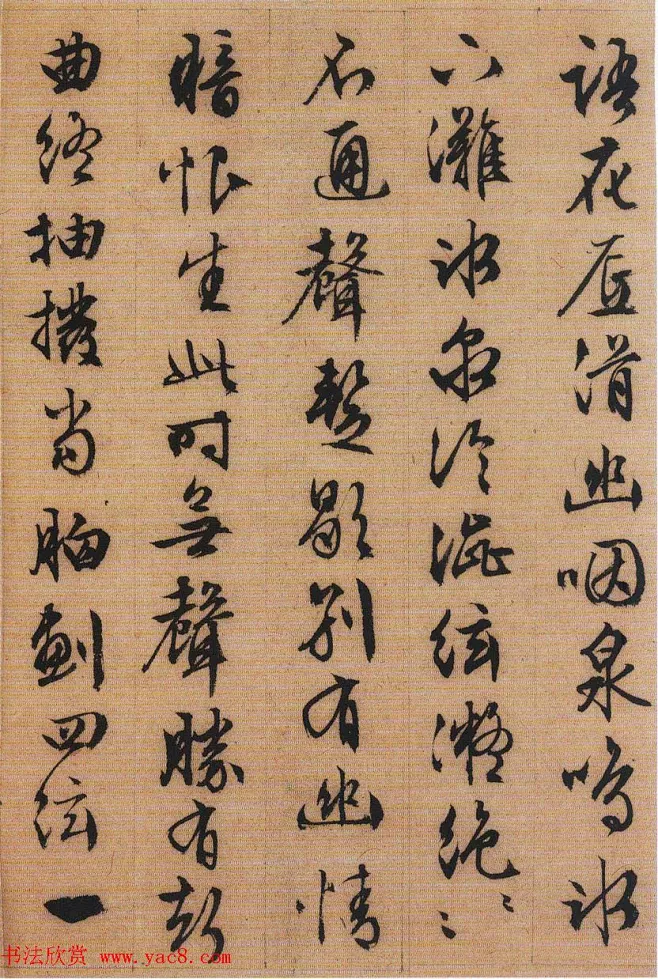 語花底滑幽咽泉鳴冰
下灘冰泉冷澀絃凝絕〻〻
不通聲暫歇別有幽情
暗恨生此時無聲勝有聲
曲終抽撥當胸劃四絃一
书法欣赏 www.yac8.com